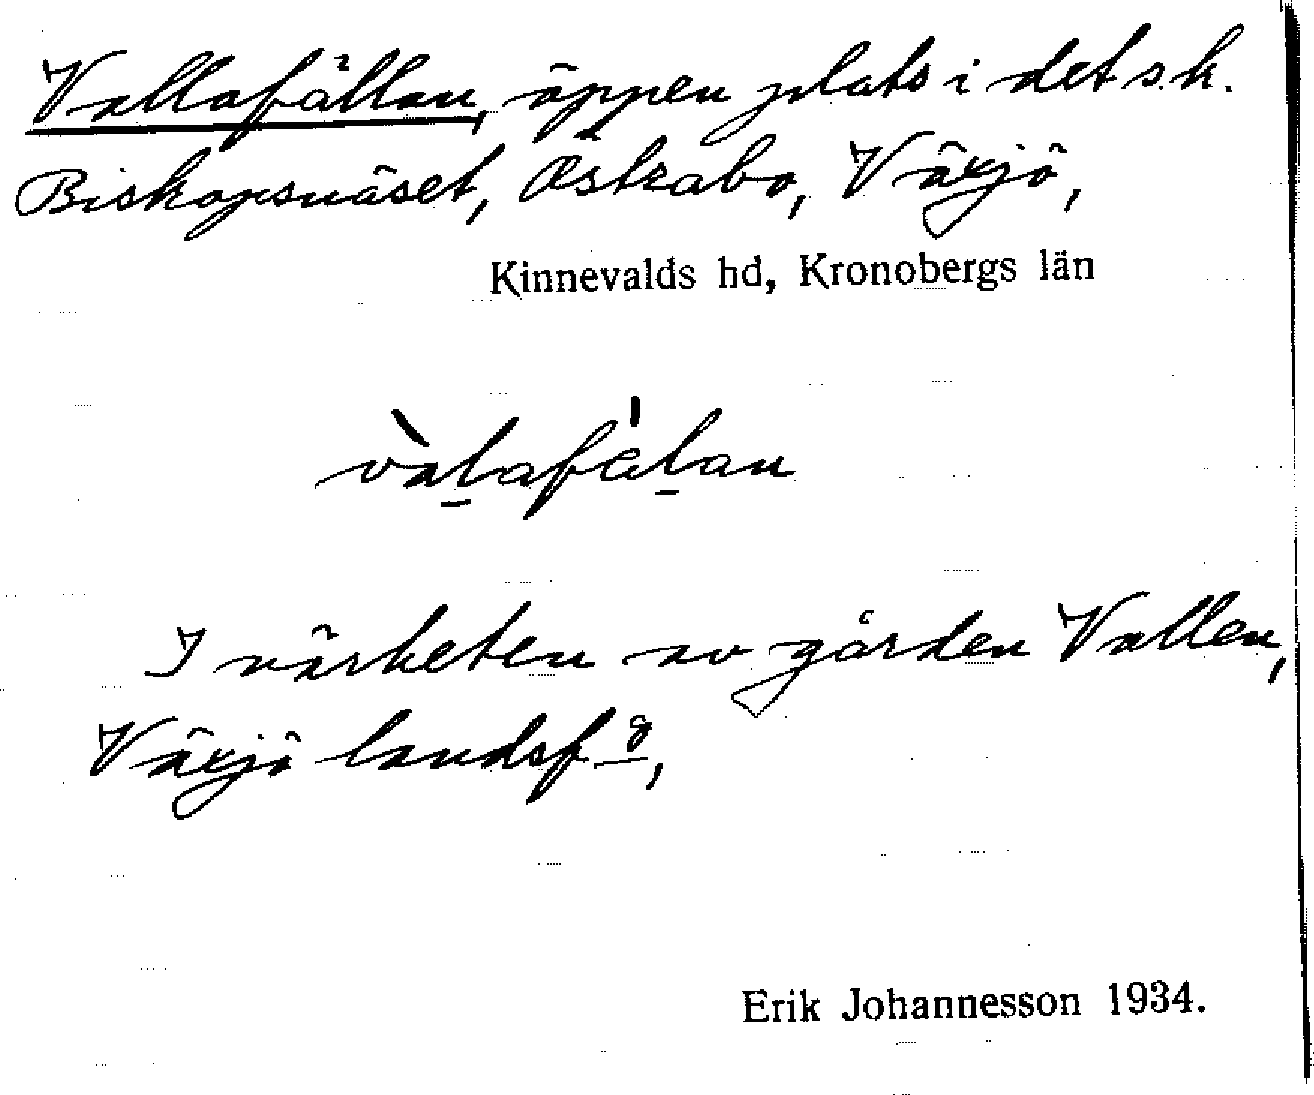 Vallafällan, öppen plats i det s.k.
Biskopsnäset, Östrabo, Växjö,
Kinnevalds hd, Kronobergs län
vàlafálan
I närheten av gården Vallen,
Växjö landsf.g,
Erik Johannesson 1934.